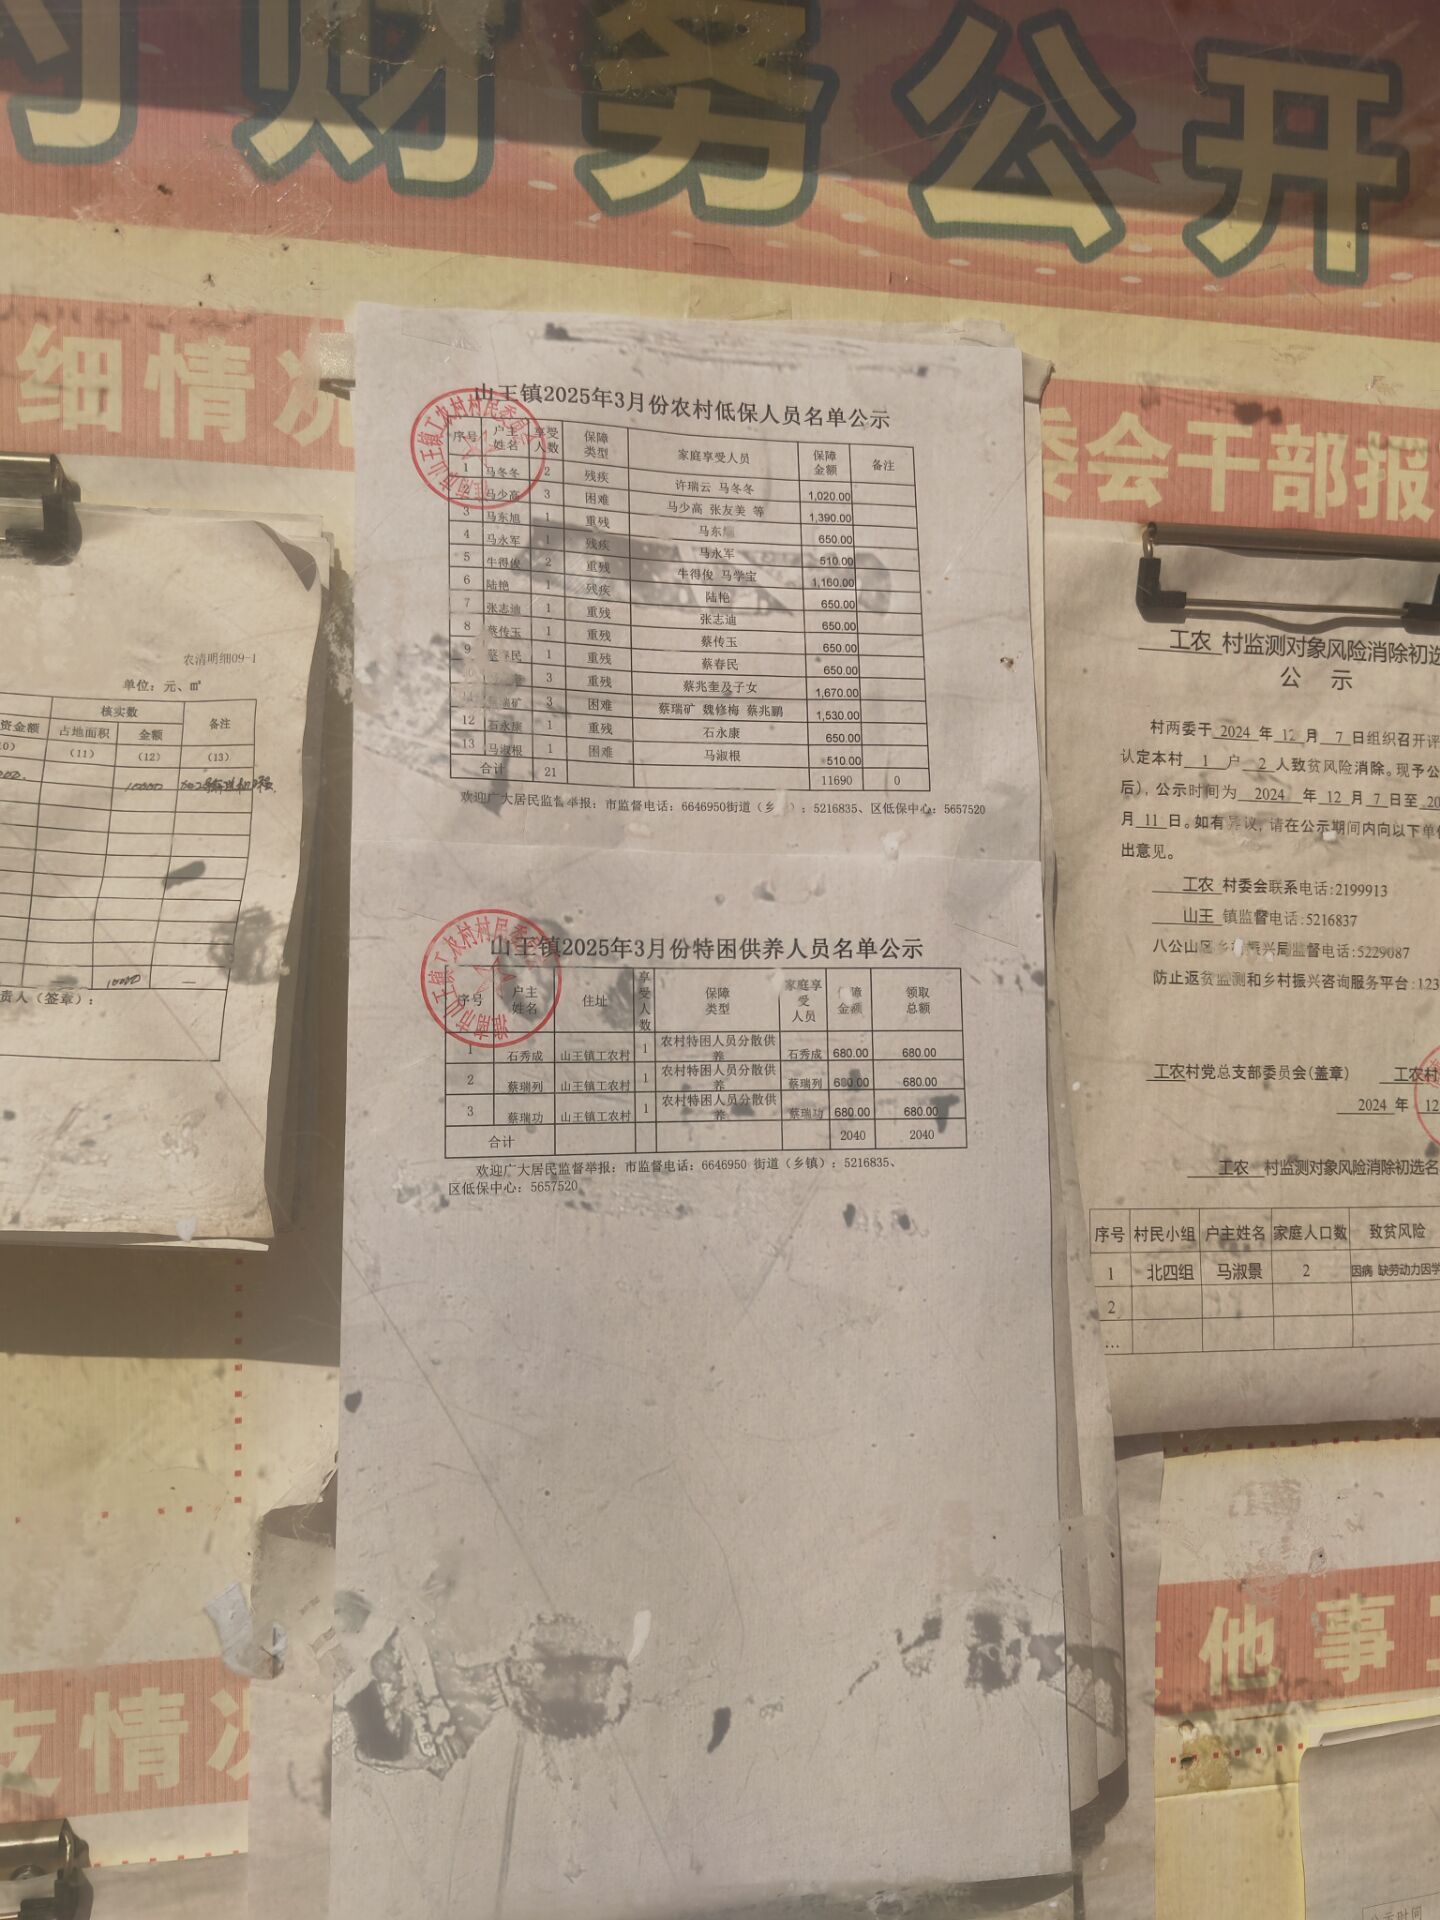 村财务公开
细情况
委会干部报
农清明细09-1
单位：元、㎡
资金额 核实数 备注
占地面积 金额
(11) (12) (13)
10000
10000 —
责人（签章）：
山王镇2025年3月份农村低保人员名单公示
序号 户主姓名 享受人数 保障类型 家庭享受人员 保障金额 备注
1 马冬冬 2 残疾 许瑞云 马冬冬 1,020.00
2 马少高 3 困难 马少高 张友美 等 1,390.00
3 马东旭 1 重残 马东 650.00
4 马永军 1 残疾 马永军 510.00
5 牛得俊 2 重残 牛得俊 马学宝 1,160.00
6 陆艳 1 残疾 陆艳 650.00
7 张志迪 1 重残 张志迪 650.00
8 蔡传玉 1 重残 蔡传玉 650.00
9 蔡春民 1 重残 蔡春民 650.00
3 重残 蔡兆奎及子女 1,670.00
瑞矿 3 困难 蔡瑞矿 魏修梅 蔡兆鹏 1,530.00
12 石永康 1 重残 石永康 650.00
13 马淑根 1 困难 马淑根 510.00
合计 21 11690 0
欢迎广大居民监督举报：市监督电话：6646950街道（乡 ）：5216835、区低保中心：5657520
山王镇2025年3月份特困供养人员名单公示
序号 户主姓名 住址 享受人数 保障类型 家庭享受人员 保障金额 领取总额
1 石秀成 山王镇工农村 1 农村特困人员分散供养 石秀成 680.00 680.00
2 蔡瑞列 山王镇工农村 1 农村特困人员分散供养 蔡瑞列 680.00 680.00
3 蔡瑞功 山王镇工农村 1 农村特困人员分散供养 蔡瑞功 680.00 680.00
合计 2040 2040
欢迎广大居民监督举报：市监督电话：6646950 街道（乡镇）：5216835、
区低保中心：5657520
淮南市山王镇工农村村民委员会
工农 村监测对象风险消除初选
公 示
村两委于 2024 年 12 月 7 日组织召开评
认定本村 1 户 2 人致贫风险消除。现予公
后），公示时间为 2024 年 12 月 7 日至 20
月 11 日。如有异议，请在公示期间内向以下单
出意见。
工农 村委会联系电话：2199913
山王 镇监督电话：5216837
八公山区乡村振兴局监督电话：5229087
防止返贫监测和乡村振兴咨询服务平台：123
工农村党总支部委员会（盖章） 工农村
2024 年 12
工农 村监测对象风险消除初选名
序号 村民小组 户主姓名 家庭人口数 致贫风险
1 北四组 马淑景 2 因病 缺劳动力因学
2
…
支情况
其他事
公示时间